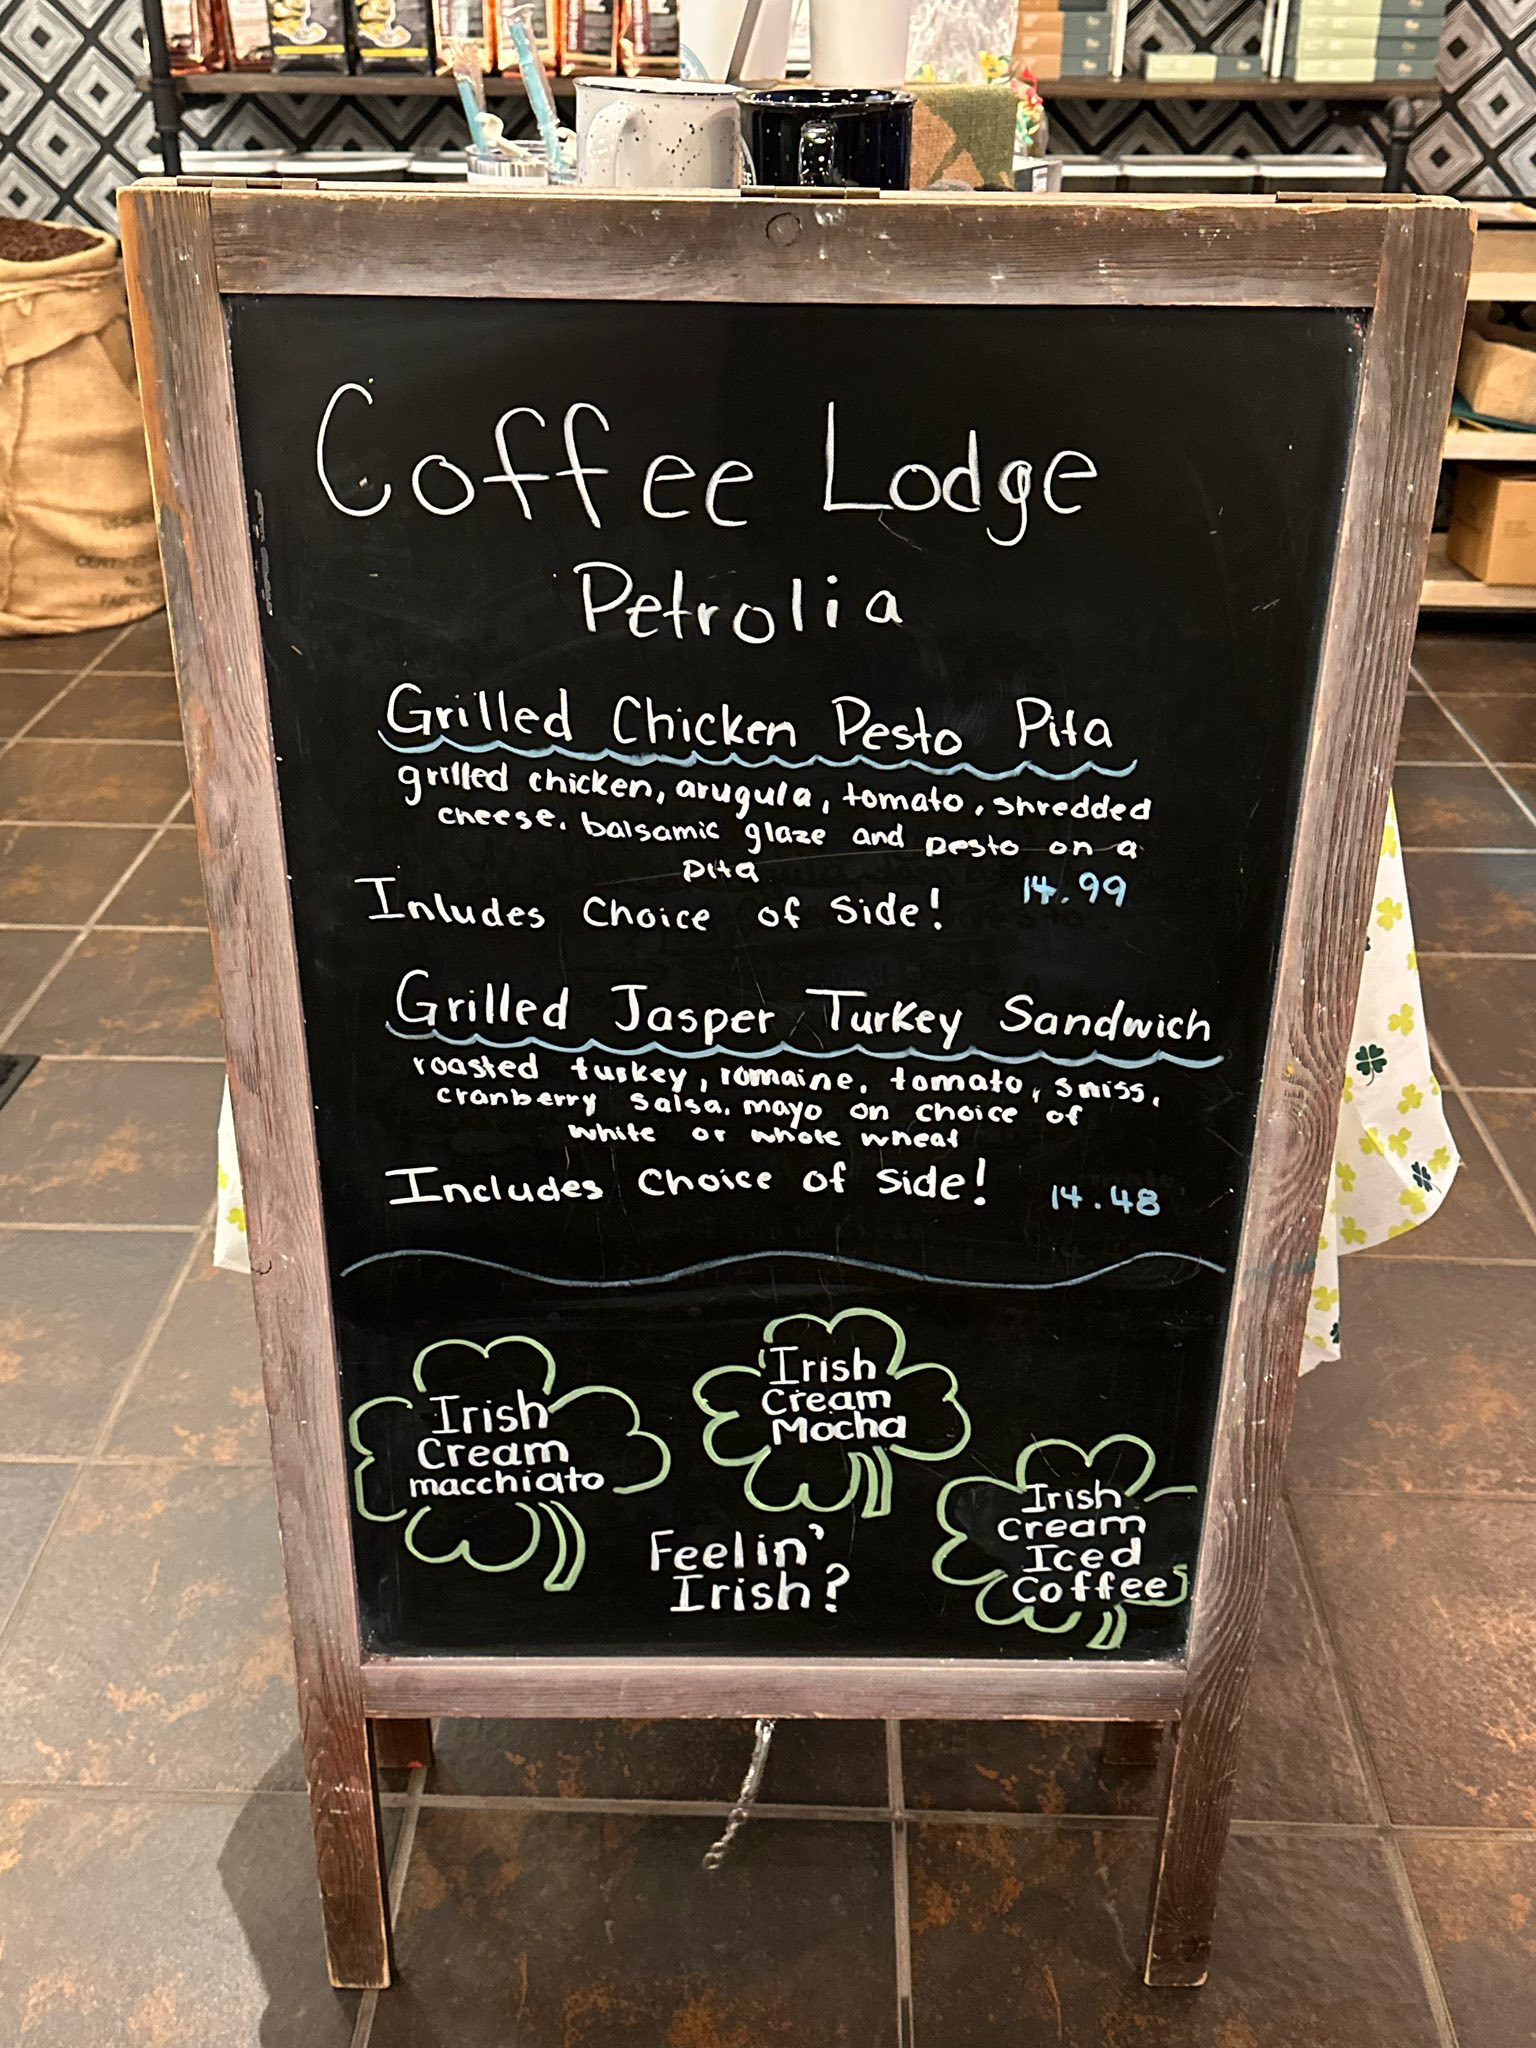 Coffee Lodge
Petrolia
Grilled Chicken Pesto Pita
grilled chicken, arugula, tomato, shredded
cheese, balsamic glaze and pesto on a
pita
14.99
Inludes Choice of Side!
Grilled Jasper Turkey Sandwich
roasted turkey, romaine, tomato, swiss,
cranberry salsa, mayo on choice of
white or whole wheat
Includes Choice of Side!
14.48
Irish
Cream
macchiato
Irish
Cream
Mocha
Irish
Cream
Iced
Coffee
Feelin'
Irish?